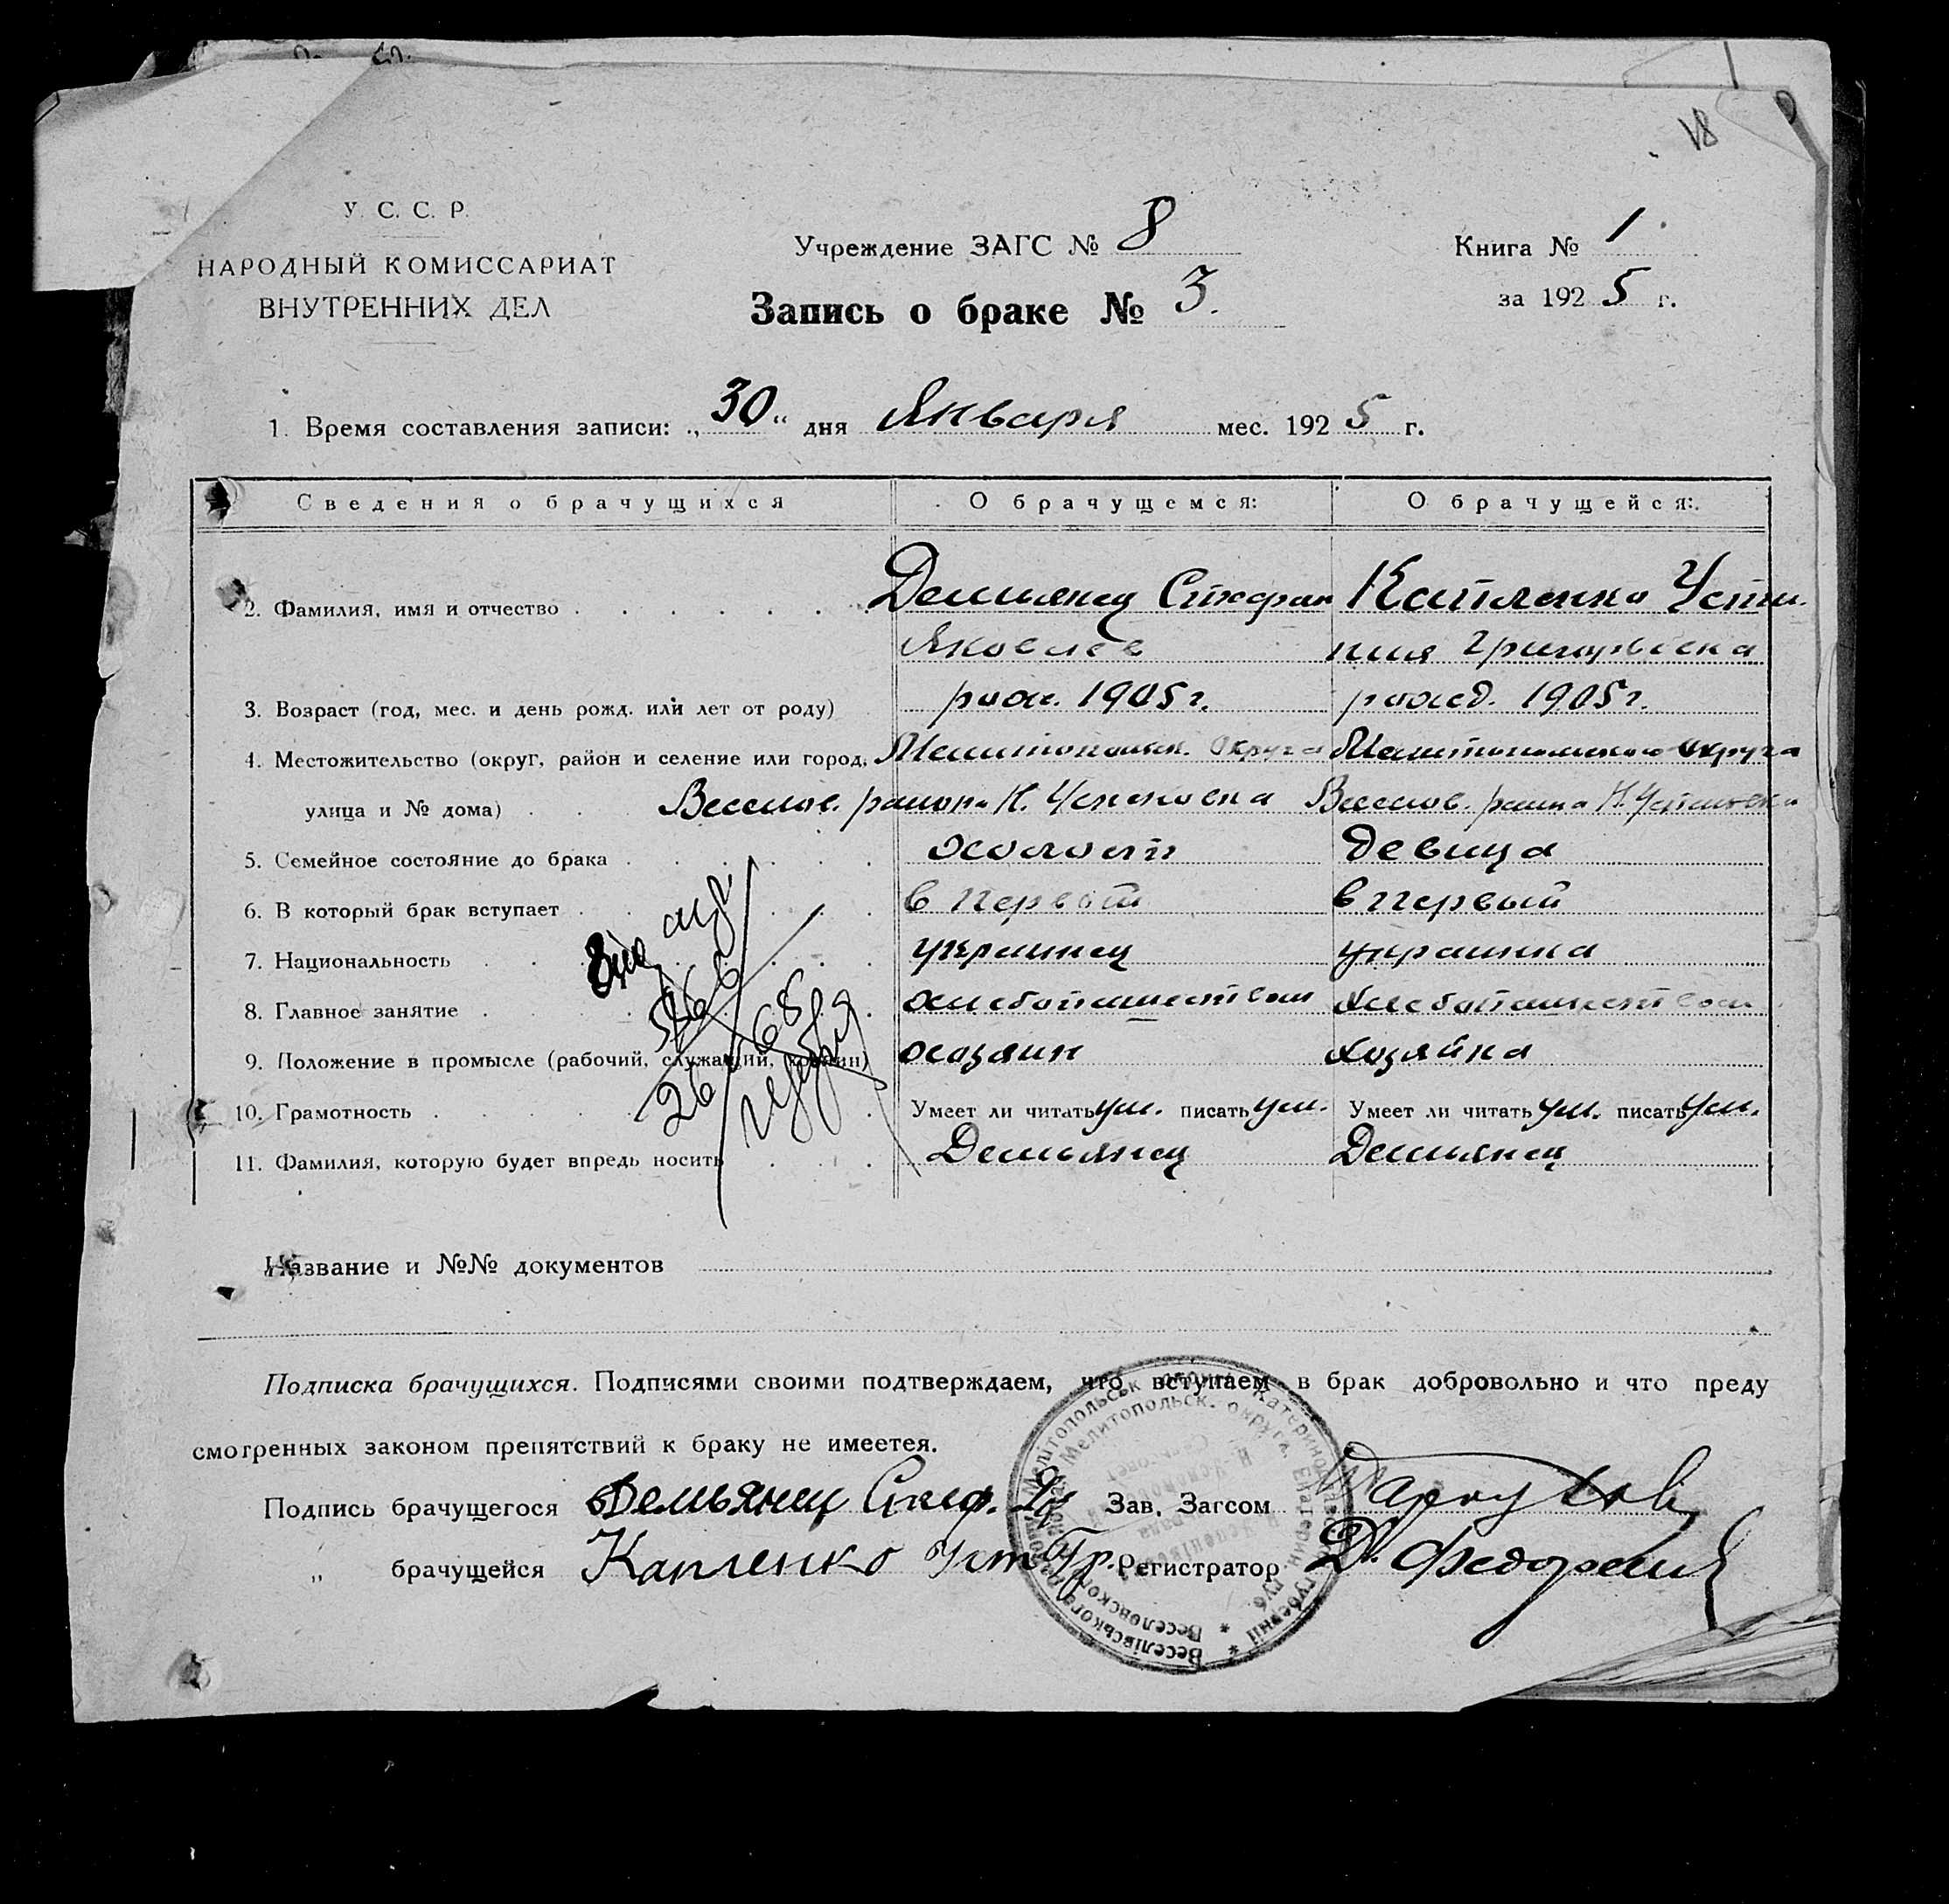 18
У. С. С. Р.
НАРОДНЫЙ КОМИССАРИАТ
ВНУТРЕННИХ ДЕЛ
Учреждение ЗАГС № 8
Книга № 1
за 1925 г.
Запись о браке № 3.
1. Время составления записи: „30“ дня Января мес. 1925 г.
Сведения о брачущихся О брачущемся: О брачущейся:
2. Фамилия, имя и отчество Демьянец Стефан Капленко Усти-
Яковлев ния Григорьевна
3. Возраст (год, мес. и день рожд. или лет от роду) рож. 1905 г. рожд. 1905 г.
4. Местожительство (округ, район и селение или город, Мелитопольск. Округа Мелитопольского Округа
улица и № дома) Веселов. района Н. Успеновка Веселов. района Н. Успеновка
5. Семейное состояние до брака холост девица
6. В который брак вступает в первый в первый
7. Национальность украинец украинка
8. Главное занятие хлебопашеством хлебопашеством
9. Положение в промысле (рабочий, служащий, хозяин) хозяин хозяйка
10. Грамотность Умеет ли читать ум. писать ум. Умеет ли читать ум. писать ум.
11. Фамилия, которую будет впредь носить Демьянец Демьянец
Название и №№ документов
Подписка брачущихся. Подписями своими подтверждаем, что вступаем в брак добровольно и что преду
смотренных законом препятствий к браку не имеетея.
Подпись брачущегося Демьянец Стеф. Як Зав. Загсом
„ брачущейся Капленко Уст Гр. Регистратор Д.
Веселівського району Мелітопольськ округи Катеринославськ губернії
Веселовского Мелитопольск. округа Екатерин. губ.